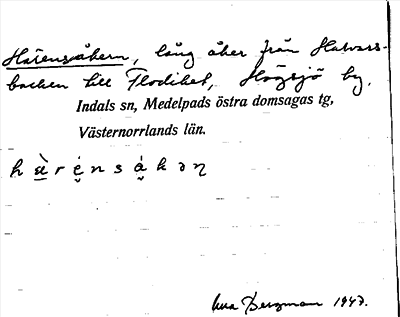 Harensåkern, lång åker från Halvars-
backen till Flodiket, Högsjö by.
Indals sn, Medelpads östra domsagas tg,
Västernorrlands län.
h ù r é n s á k ə n
Bergman 1947.